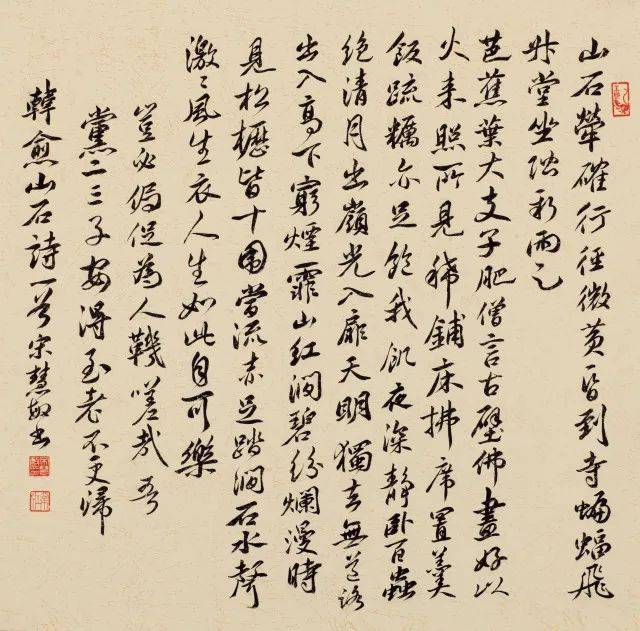 山石犖確行徑微黄昏到寺蝙蝠飛
升堂坐階新雨足
芭蕉葉大支子肥僧言古壁佛畫好以
火来照所見稀鋪床拂席置羹
飯疏糲亦足飽我飢夜深靜卧百蟲
絶清月出嶺光入扉天明獨去無道路
出入高下窮煙霏山紅澗碧紛爛漫時
見松櫪皆十圍當流赤足踏澗石水聲
激々風生衣人生如此自可樂
豈必侷促為人鞿嗟哉吾
黨二三子安得至老不更歸
韓愈山石詩一首宋慧敏書